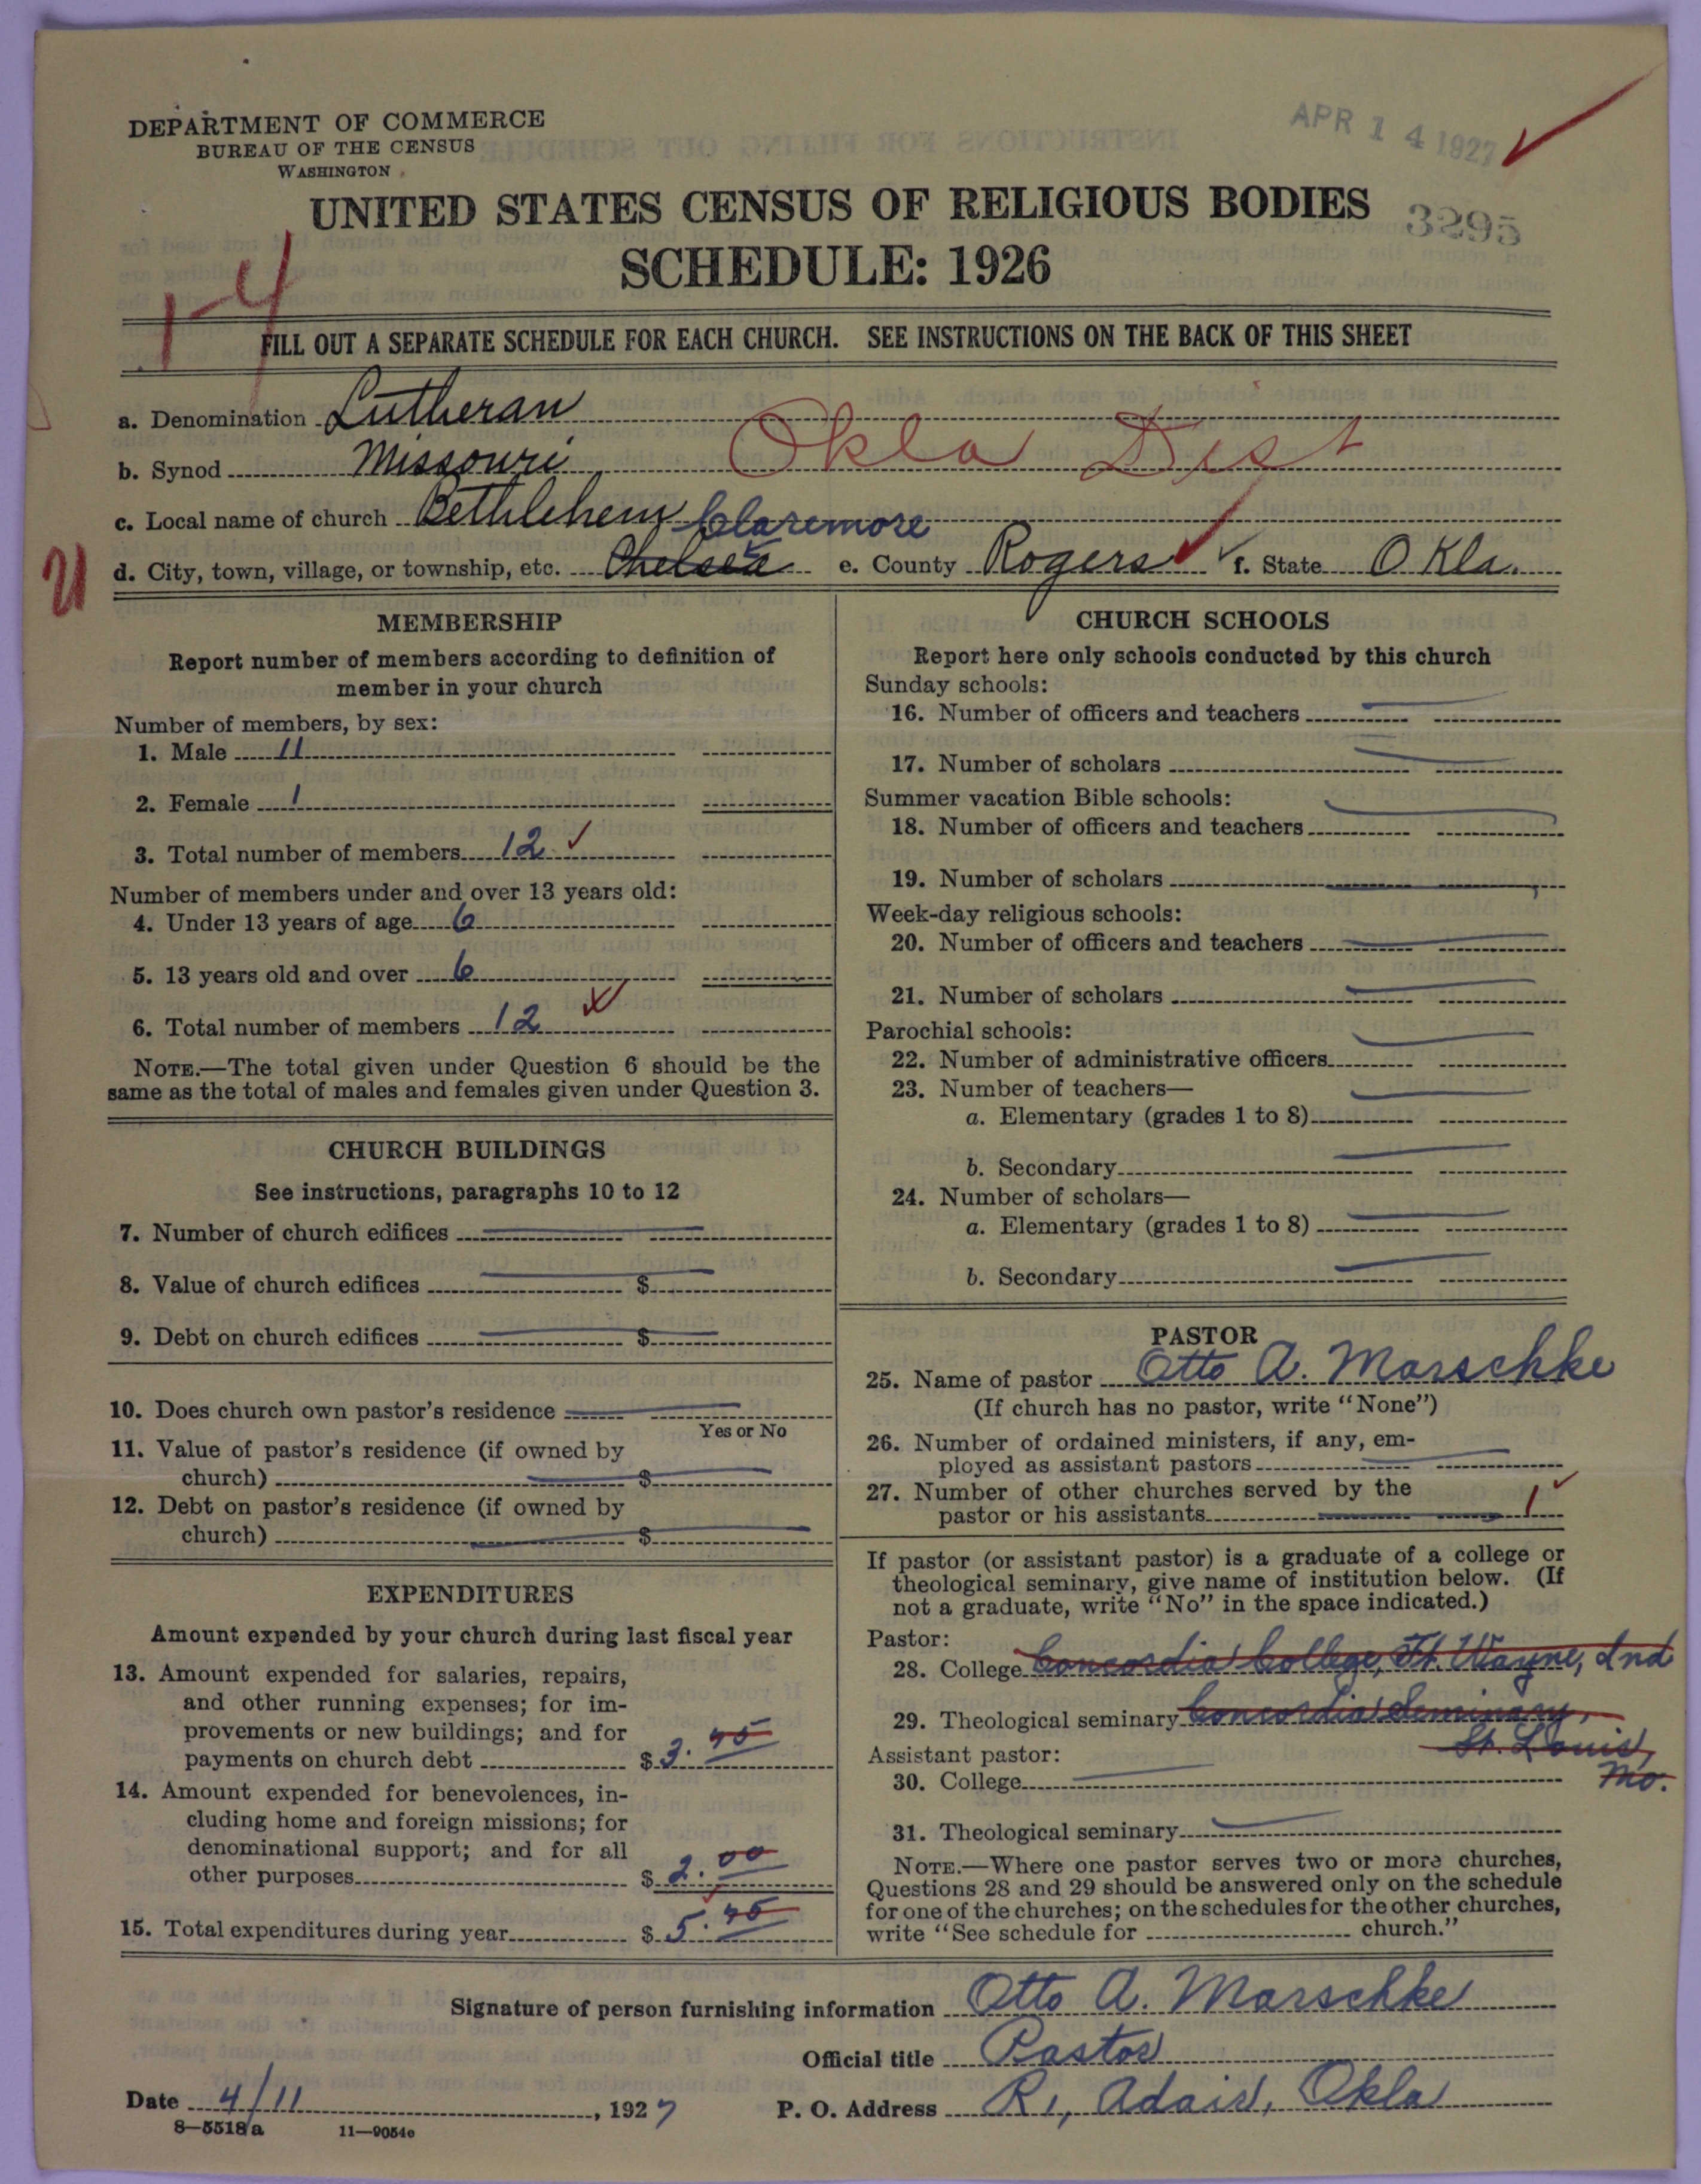 DEPARTMENT OF COMMERCE
BUREAU OF THE CENSUS
WASHINGTON
APR 14 1927
UNITED STATES CENSUS OF RELIGIOUS BODIES
3295
SCHEDULE: 1926
FILL OUT A SEPARATE SCHEDULE FOR EACH CHURCH. SEE INSTRUCTIONS ON THE BACK OF THIS SHEET
a. Denomination Lutheran
b. Synod Missouri Okla Dist
c. Local name of church Bethlehem
Claremore
d. City, town, village, or township, etc. Chelsea e. County Rogers f. State Okla.
MEMBERSHIP
Report number of members according to definition of
member in your church
Number of members, by sex:
1. Male 11
2. Female 1
3. Total number of members 12
Number of members under and over 13 years old:
4. Under 13 years of age 6
5. 13 years old and over 6
6. Total number of members 12
NOTE.—The total given under Question 6 should be the
same as the total of males and females given under Question 3.
CHURCH BUILDINGS
See instructions, paragraphs 10 to 12
7. Number of church edifices
8. Value of church edifices $
9. Debt on church edifices $
10. Does church own pastor's residence
Yes or No
11. Value of pastor's residence (if owned by
church) $
12. Debt on pastor's residence (if owned by
church) $
EXPENDITURES
Amount expended by your church during last fiscal year
13. Amount expended for salaries, repairs,
and other running expenses; for im-
provements or new buildings; and for
payments on church debt $3.45
14. Amount expended for benevolences, in-
cluding home and foreign missions; for
denominational support; and for all
other purposes $2.00
15. Total expenditures during year $5.45
CHURCH SCHOOLS
Report here only schools conducted by this church
Sunday schools:
16. Number of officers and teachers
17. Number of scholars
Summer vacation Bible schools:
18. Number of officers and teachers
19. Number of scholars
Week-day religious schools:
20. Number of officers and teachers
21. Number of scholars
Parochial schools:
22. Number of administrative officers
23. Number of teachers—
a. Elementary (grades 1 to 8)
b. Secondary
24. Number of scholars—
a. Elementary (grades 1 to 8)
b. Secondary
PASTOR
25. Name of pastor Otto A. Marschke
(If church has no pastor, write "None")
26. Number of ordained ministers, if any, em-
ployed as assistant pastors
27. Number of other churches served by the
pastor or his assistants 1
If pastor (or assistant pastor) is a graduate of a college or
theological seminary, give name of institution below. (If
not a graduate, write "No" in the space indicated.)
Pastor:
28. College Concordia College, Ft. Wayne, Ind
29. Theological seminary Concordia Seminary,
St. Louis,
Mo.
Assistant pastor:
30. College
31. Theological seminary
NOTE.—Where one pastor serves two or more churches,
Questions 28 and 29 should be answered only on the schedule
for one of the churches; on the schedules for the other churches,
write "See schedule for church."
Signature of person furnishing information Otto A. Marschke
Official title Pastor
Date 4/11, 1927 P. O. Address R1, Adair, Okla
8—5518a 11—9054e